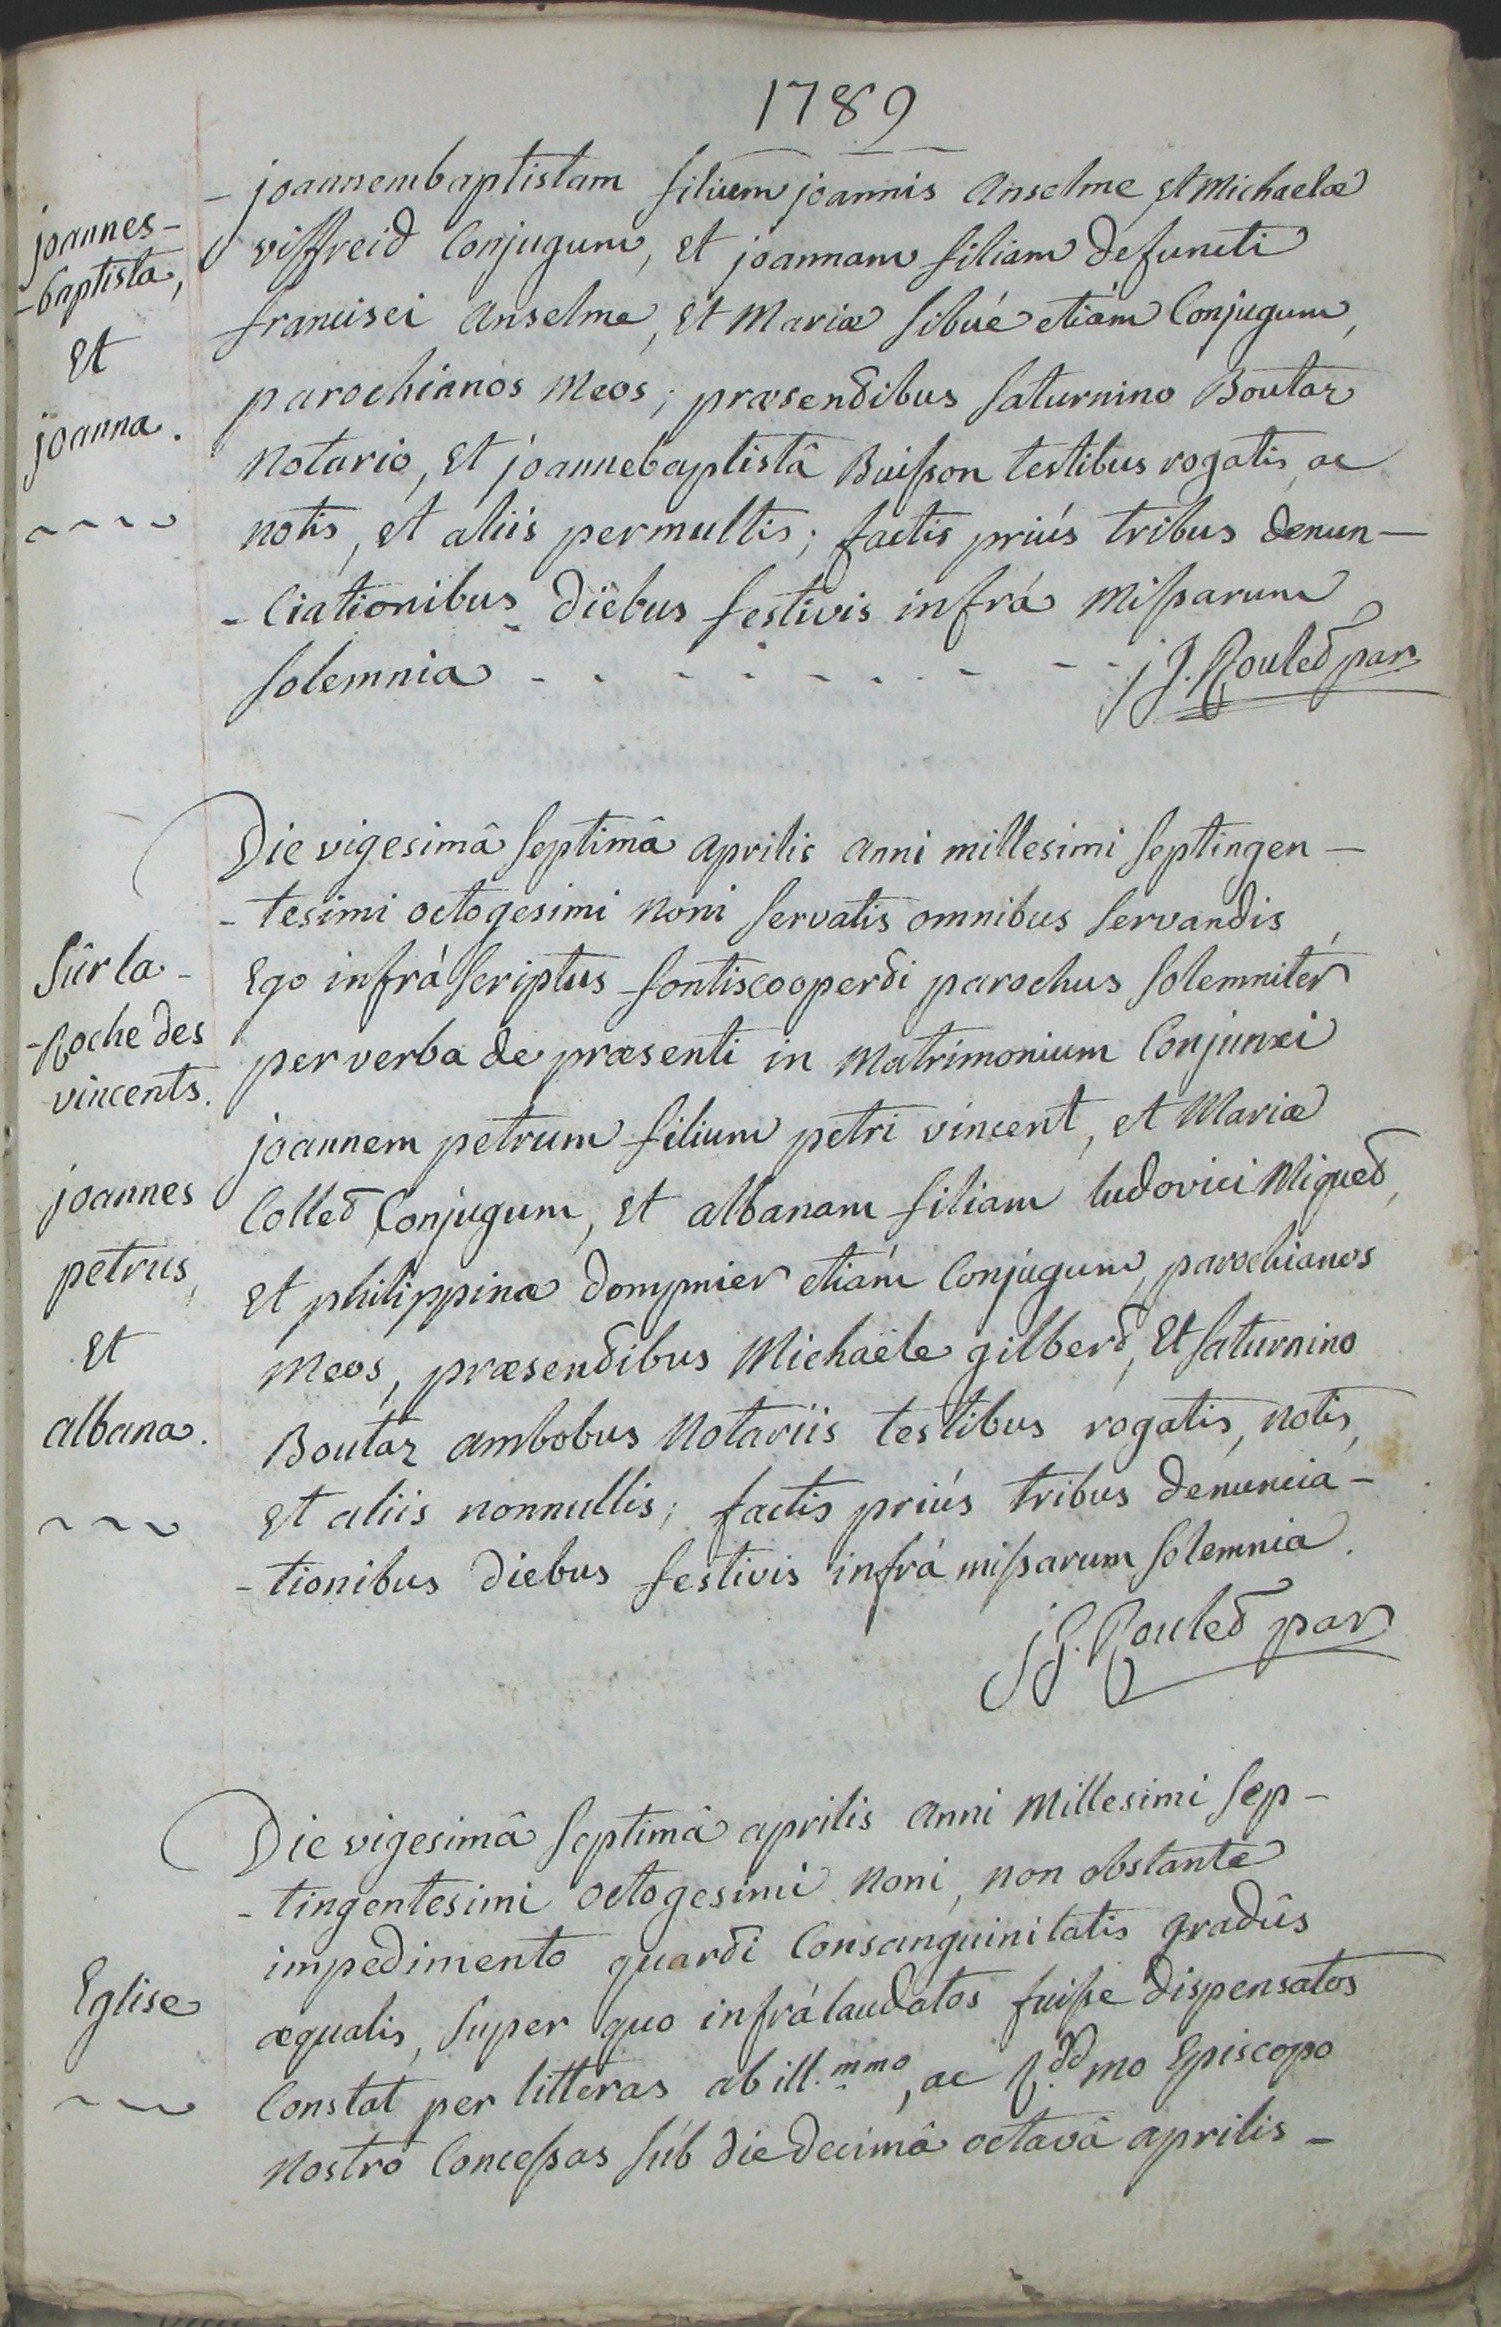 1789
- joannembaptistam filium joannis Anselme et Michaelæ
viffreid Conjugum, et joannam filiam defuncti
francisci Anselme, et Mariæ Sibué etiám Conjugum,
parochianos meos; præsentibus Saturnino Boutaz
notario, et joannebaptistâ Buisson testibus rogatis, ac
notis, et aliis permultis; factis priús tribus denun-
-ciationibus diebus festivis infrá missarum
solemnia - - - - - - - - - j J. Roulet par
joannes-
-baptista,
et
joanna.
Die vigesimâ septimâ aprilis anni millesimi septingen-
-tesimi octogesimi noni servatis omnibus servandis,
Ego infráscriptus fontiscooperti parochus solemnitér
per verba de præsenti in matrimonium Conjunxi
joannem petrum filium petri vincent, et Mariæ
Collet Conjugum, et albanam filiam ludovici Miguet,
et philippinæ dompnier etiám Conjugum, parochianos
meos, præsentibus Michaële gilbert, et Saturnino
Boutaz ambobus notariis testibus rogatis, notis,
et aliis nonnullis; factis priús tribus denuncia-
-tionibus diebus festivis infrá missarum solemnia.
j J. Roulet par
Sûr la -
-Roche des
vincents.
joannes
petrus,
et
albana.
Die vigesimâ septimâ aprilis anni millesimi sep-
-tingentesimi octogesimi noni, non obstante
impedimento quarti Consanguinitatis gradûs
æqualis, super quo infrálaudatos fuisse dispensatos
Constat per litteras ab ill.mmo, ac R.dd mo Episcopo
nostro Concessas súb die decimâ octavâ aprilis -
Eglise